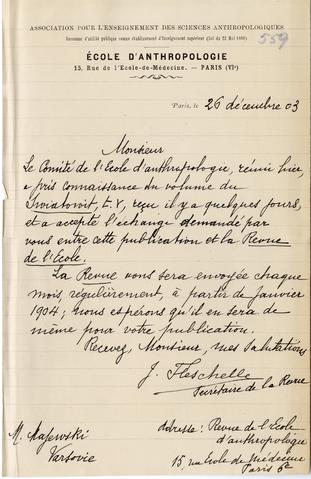 ASSOCIATION POUR L'ENSEIGNEMENT DES SCIENCES ANTHROPOLOGIQUES
Reconnue d'utilité publique comme établissement d'enseignement supérieur (Loi du 22 Mai 1889)
559
ÉCOLE D'ANTHROPOLOGIE
15, Rue de l'Ecole-de-Médecine. — PARIS (VIe)
Paris, le 26 décembre 03
Monsieur
Le Comité de l'Ecole d'anthropologie, réuni hier,
a pris connaissance du volume du
Swiatowit, t. V, reçu il y a quelques jours,
et a accepté l'échange demandé par
vous entre cette publication et la Revue
de l'Ecole.
La Revue vous sera envoyée chaque
mois, régulièrement, à partir de janvier
1904 ; nous espérons qu'il en sera de
même pour votre publication.
Recevez, Monsieur, mes salutations
J. Fleschelle
Secrétaire de la Revue
M. Majewski
Varsovie
adresse : Revue de l'Ecole
d'anthropologie
15, rue Ecole de Médecine
Paris 6e